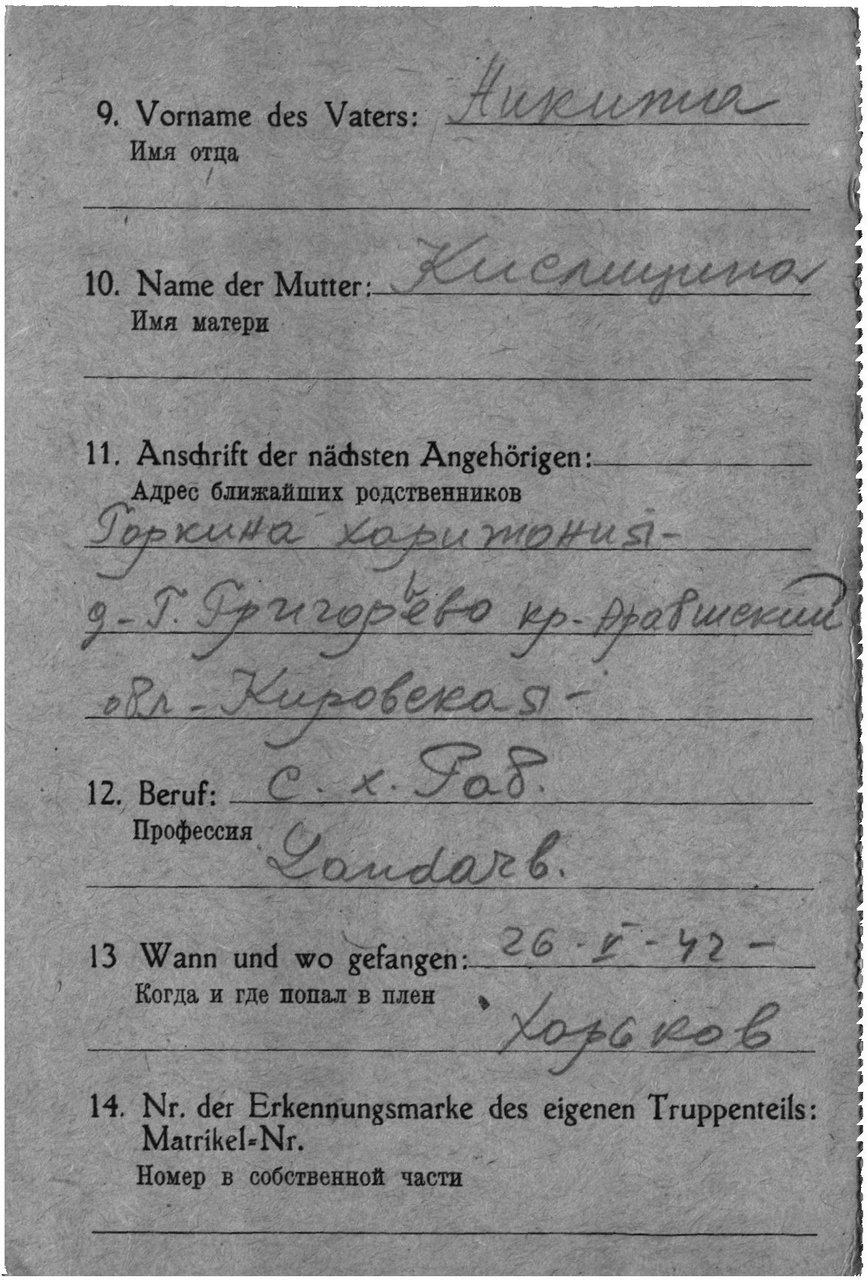 9. Vorname des Vaters: Никита
Имя отца
10. Name der Mutter: Кислицина
Имя матери
11. Anschrift der nächsten Angehörigen:
Адрес ближайших родственников
Горкина харитония-
д-Г. Григорьево кр-Арабшский
обл-Кировская-
12. Beruf: с. х. Раб.
Профессия
Landarb.
13 Wann und wo gefangen: 26-V-42-
Когда и где попал в плен
Харьков
14. Nr. der Erkennungsmarke des eigenen Truppenteils:
Matrikel-Nr.
Номер в собственной части